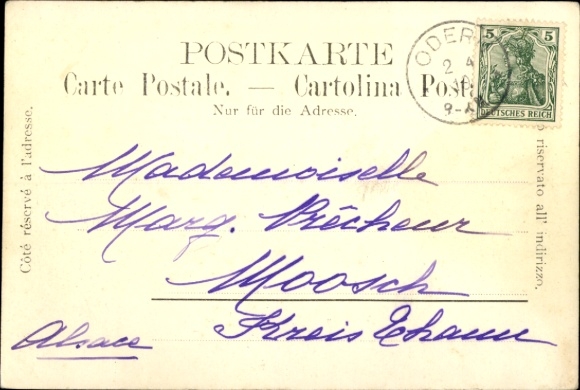 POSTKARTE
Carte Postale. — Cartolina Posta
Nur für die Adresse.
ODER
2 4
8-
5 5
DEUTSCHES REICH
Côté réservé à l'adresse.
riservato all' indirizzo.
Mademoiselle
Marg. Prêcheur
Moosch
Kreis Thann
Alsace